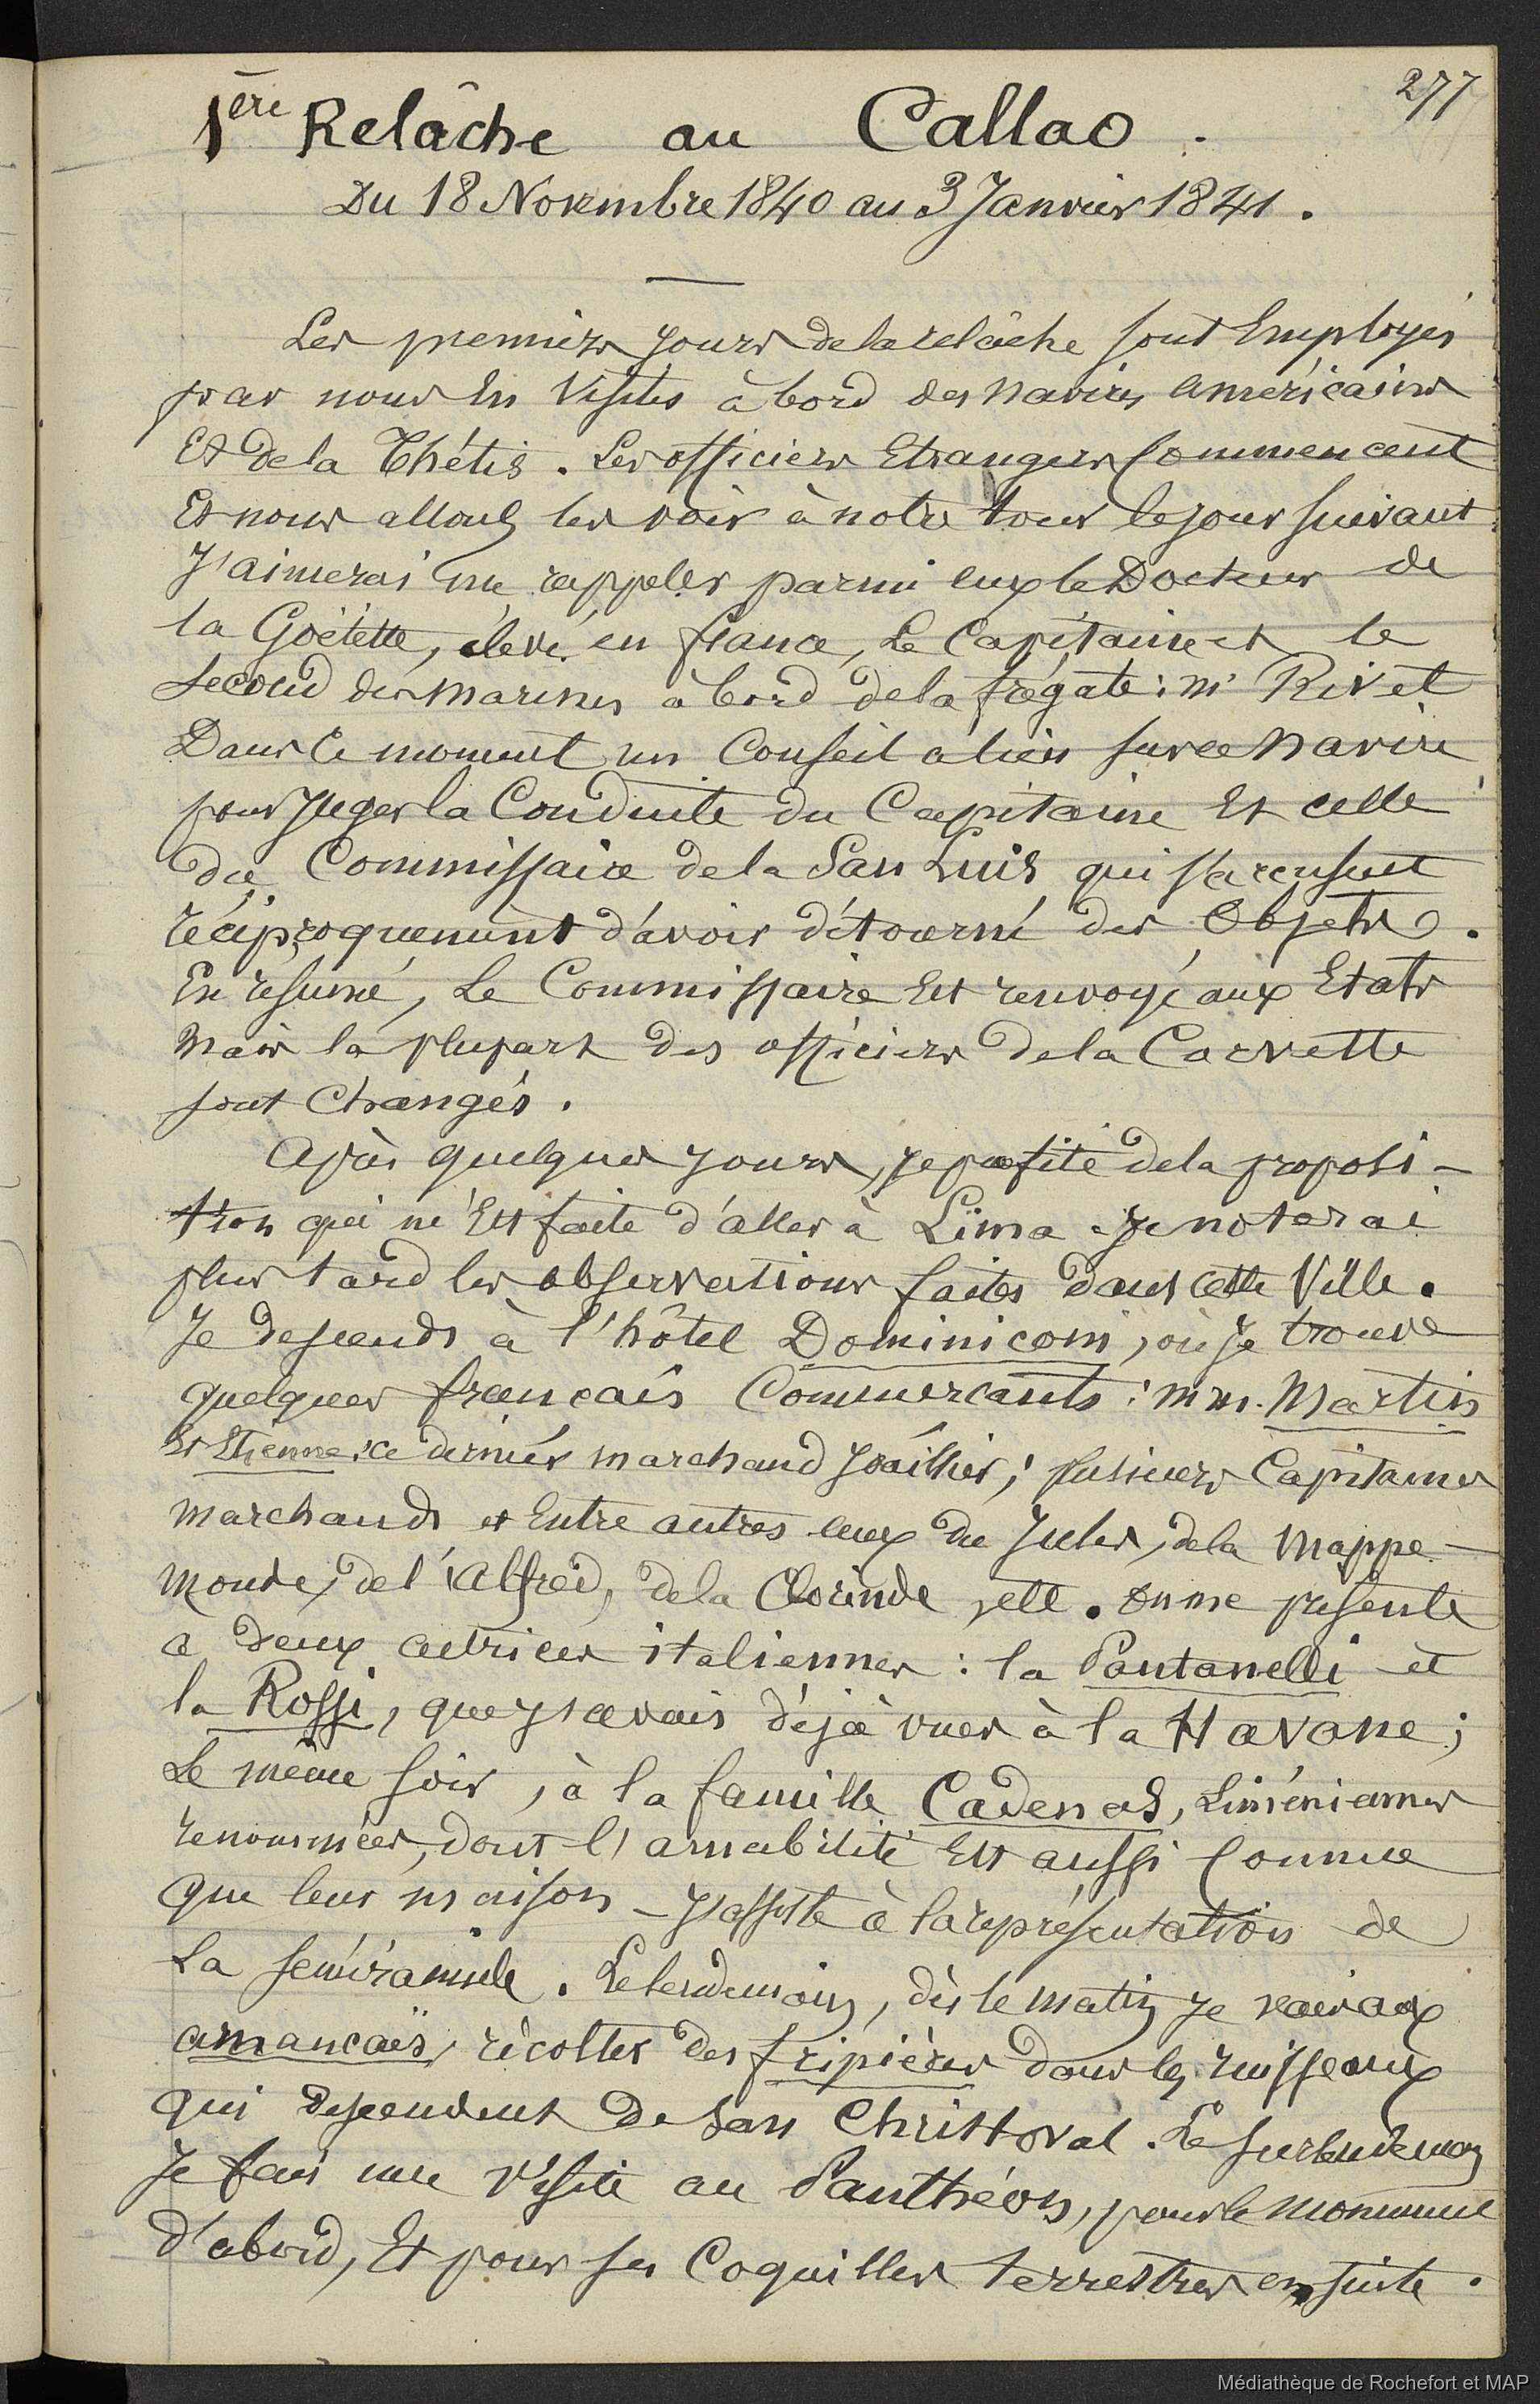 277
1ère Relâche au Callao.
Du 18 Novembre 1840 au 3 Janvier 1841.
Les premiers jours de la relâche sont Employés
par nous En Visites à bord des navires américains
Et de la Thétis. Les officiers Etrangers Commencent
Et nous allons les voir à notre tour le jour suivant
J'aimerai me rappeler parmi eux le Docteur de
la Goëlette, élevé en france, Le Capitaine et le
second des marines à bord de la frégate: Mr Rivet
Dans Ce moment un Conseil a lieu sur ce navire
pour Juger la Conduite du Capitaine Et celle
du Commissaire de la San Luis qui s'accusent
réciproquement d'avoir détourné des Objets.
En résumé, Le Commissaire Est renvoyé aux Etats
Mais la plupart des officiers de la Corvette
sont Changés.
Après quelques jours, je profite de la proposi-
tion qui m'Est faite d'aller à Lima. Je noterai
plus tard les observations faites dans cette Ville.
Je descends à l'hôtel Dominiconi, où je trouve
quelques francais Commercants: mm. Martin
Et Etienne: ce dernier marchand Joaillier; plusieurs Capitaines
marchands et Entre autres ceux du Jules, de la Mappe-
monde, de l'Alfred, de la Clorinde, ett. On me présente
a deux actrices italiennes: la Pantanelli et
la Rossi, que j'avais déjà vues à la Havane;
Le même soir, à la famille Cadenas, Liméniennes
renommées, dont l'amabilité Est aussi Connue
que leur maison - J'assiste à la représentation de
La semiramide. Le lendemain, dès le matin je vais aux
amancaës, récolter des fripières dans les ruisseaux
qui descendent de San Christoval. Le surlendemain
Je fais une visite au Panthéon, pour le monument
d'abord, Et pour ses Coquilles terrestres ensuite.
Médiathèque de Rochefort et MAP